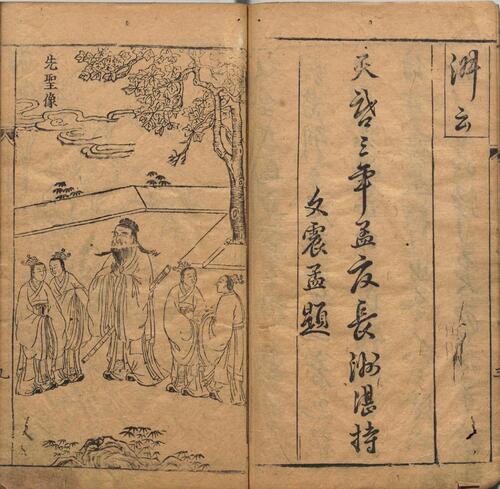 云
天啓三年孟夏長洲湛持
文震孟題
先聖像